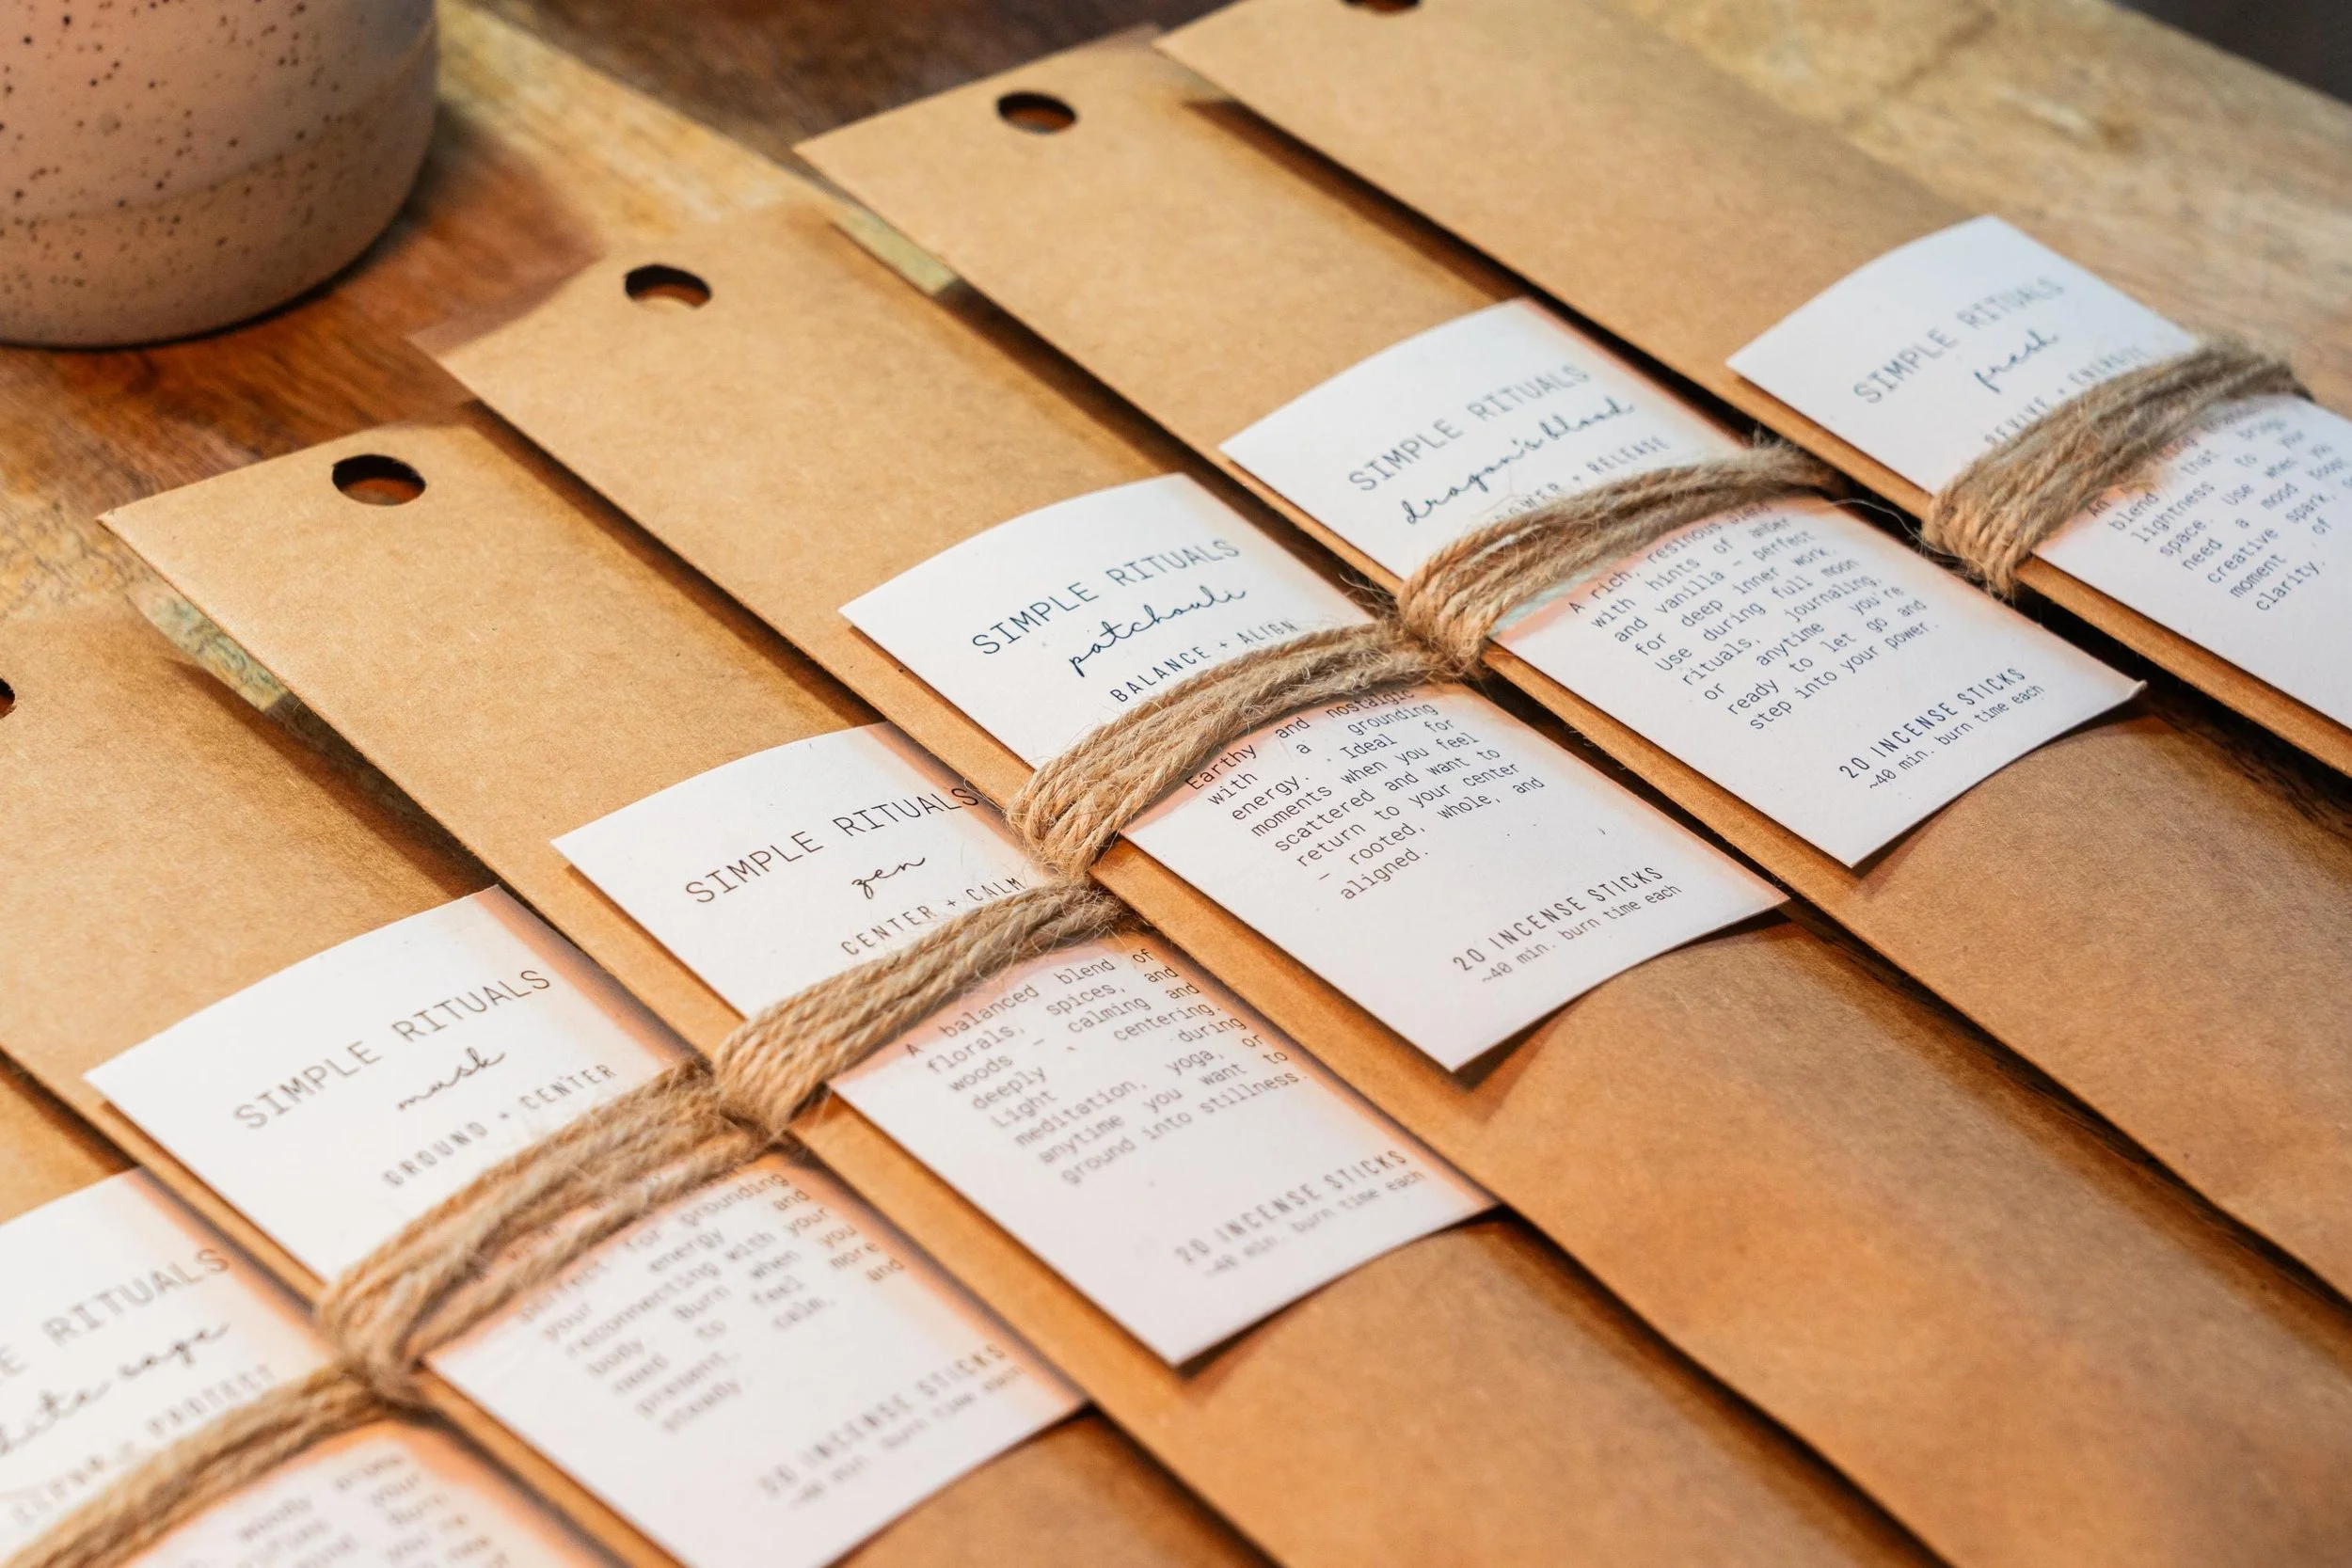 SIMPLE RITUALS
fresh
REVIVE + ENERGIZE
An
blend that brings
lightness to your
space. Use when you
need a mood
creative spark,
moment of
clarity.
SIMPLE RITUALS
dragon's blood
POWER + RELEASE
A rich, resinous blend
with hints of amber
and vanilla – perfect
for deep inner work.
Use during full moon
rituals, journaling,
or anytime you're
ready to let go and
step into your power.
20 INCENSE STICKS
~40 min. burn time each
SIMPLE RITUALS
patchouli
BALANCE + ALIGN
Earthy and nostalgic
with a grounding
energy. Ideal for
moments when you feel
scattered and want to
return to your center
– rooted, whole, and
aligned.
20 INCENSE STICKS
~40 min. burn time each
SIMPLE RITUALS
zen
CENTER + CALM
A balanced blend of
florals, spices, and
woods – calming and
deeply centering.
Light during
meditation, yoga, or
anytime you want to
ground into stillness.
20 INCENSE STICKS
~40 min. burn time each
SIMPLE RITUALS
musk
GROUND + CENTER
perfect for grounding
your energy and
reconnecting with your
body. Burn when you
need to feel more
present, calm, and
steady.
20 INCENSE STICKS
~40 min. burn time each
RITUALS
sage
PROTECT
woody
your
Burn